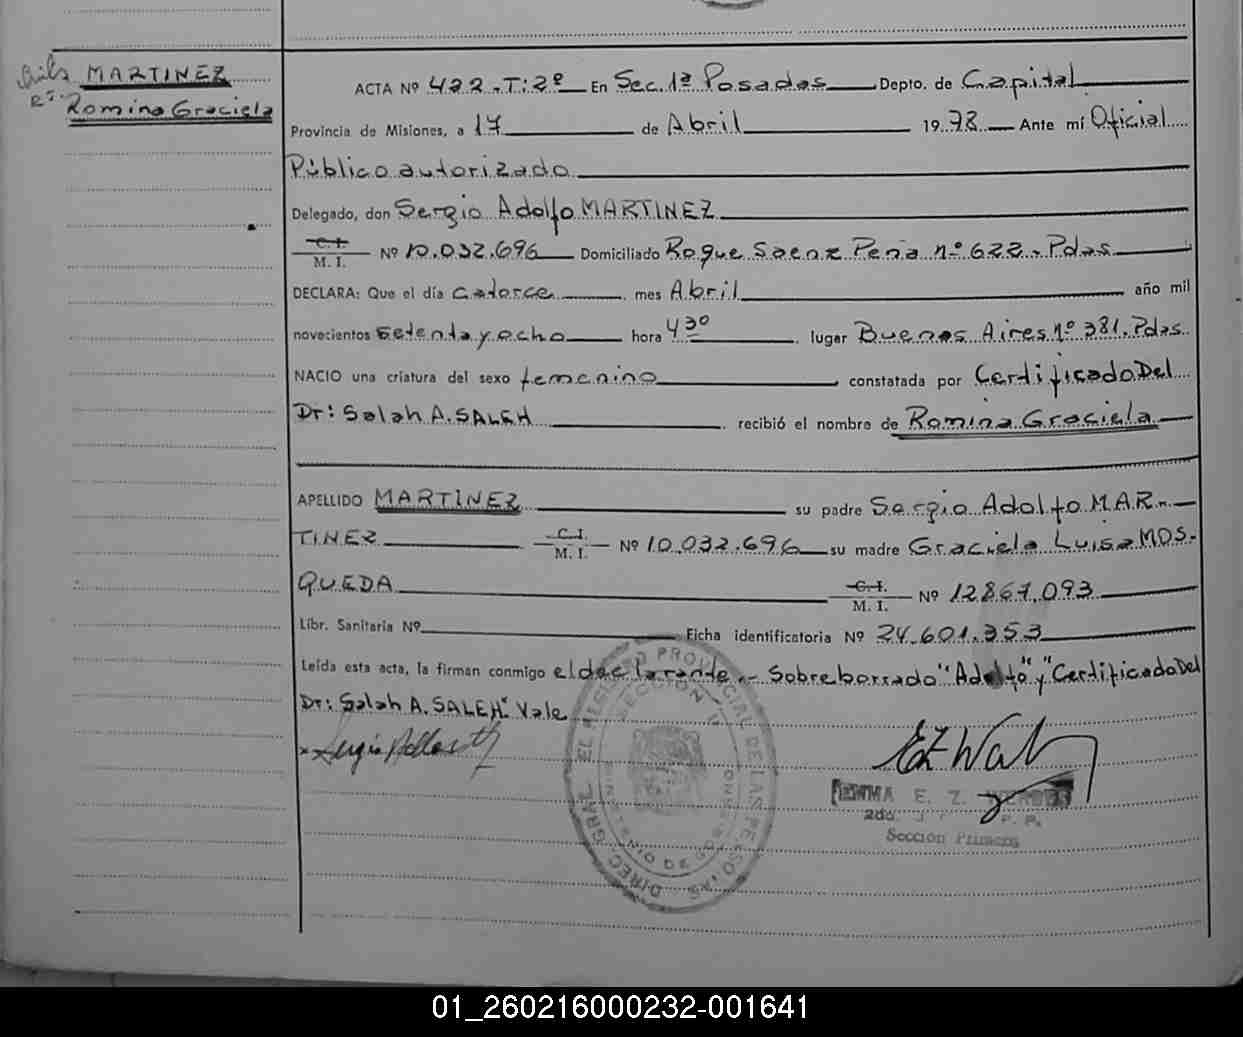 MARTINEZ
Romina Graciela
ACTA Nº 422.T:2º En Sec.1ª Posadas Depto. de Capital
Provincia de Misiones, a 17 de Abril 1978 Ante mí Oficial
Público autorizado
Delegado, don Sergio Adolfo MARTINEZ
C.I.
M. I. Nº 10.032.696 Domiciliado Roque Saenz Peña nº 622. Pdas
DECLARA: Que el día catorce mes Abril año mil
novecientos setenta y ocho hora 4 30 lugar Buenos Aires nº 381. Pdas.
NACIO una criatura del sexo femenino constatada por Certificado Del
Dr: Salah A. SALEH recibió el nombre de Romina Graciela
APELLIDO MARTINEZ su padre Sergio Adolfo MAR-
TINEZ C.I. M. I. Nº 10.032.696 su madre Graciela Luisa MOS-
QUEDA C.I. M. I. Nº 12867.093
Libr. Sanitaria Nº Ficha identificatoria Nº 24.601.353
Leída esta acta, la firman conmigo el declarante.- Sobreborrado "Adolfo" y "Certificado Del
Dr: Salah A. SALEH" Vale
E. Z.
2da. J. P. P.
Sección Primera
DIREC. GRAL. EL REGISTRO PROVINCIAL DE LAS PERSONAS
SECCION 1ª
MINISTERIO DE GOBIERNO
01_260216000232-001641